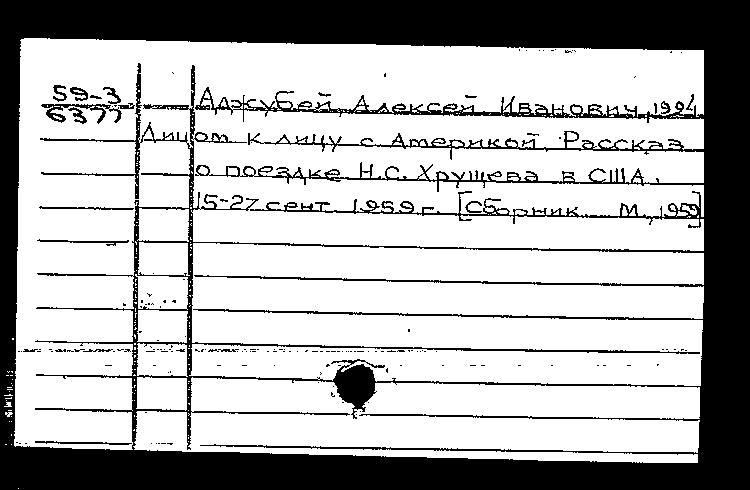 59-3
6377
Аджубей, Алексей Иванович, 1924
Лицом к лицу с Америкой. Рассказ
о поездке Н.С. Хрущева в США.
15-27 сент. 1959 г. [Сборник. М., 1959]